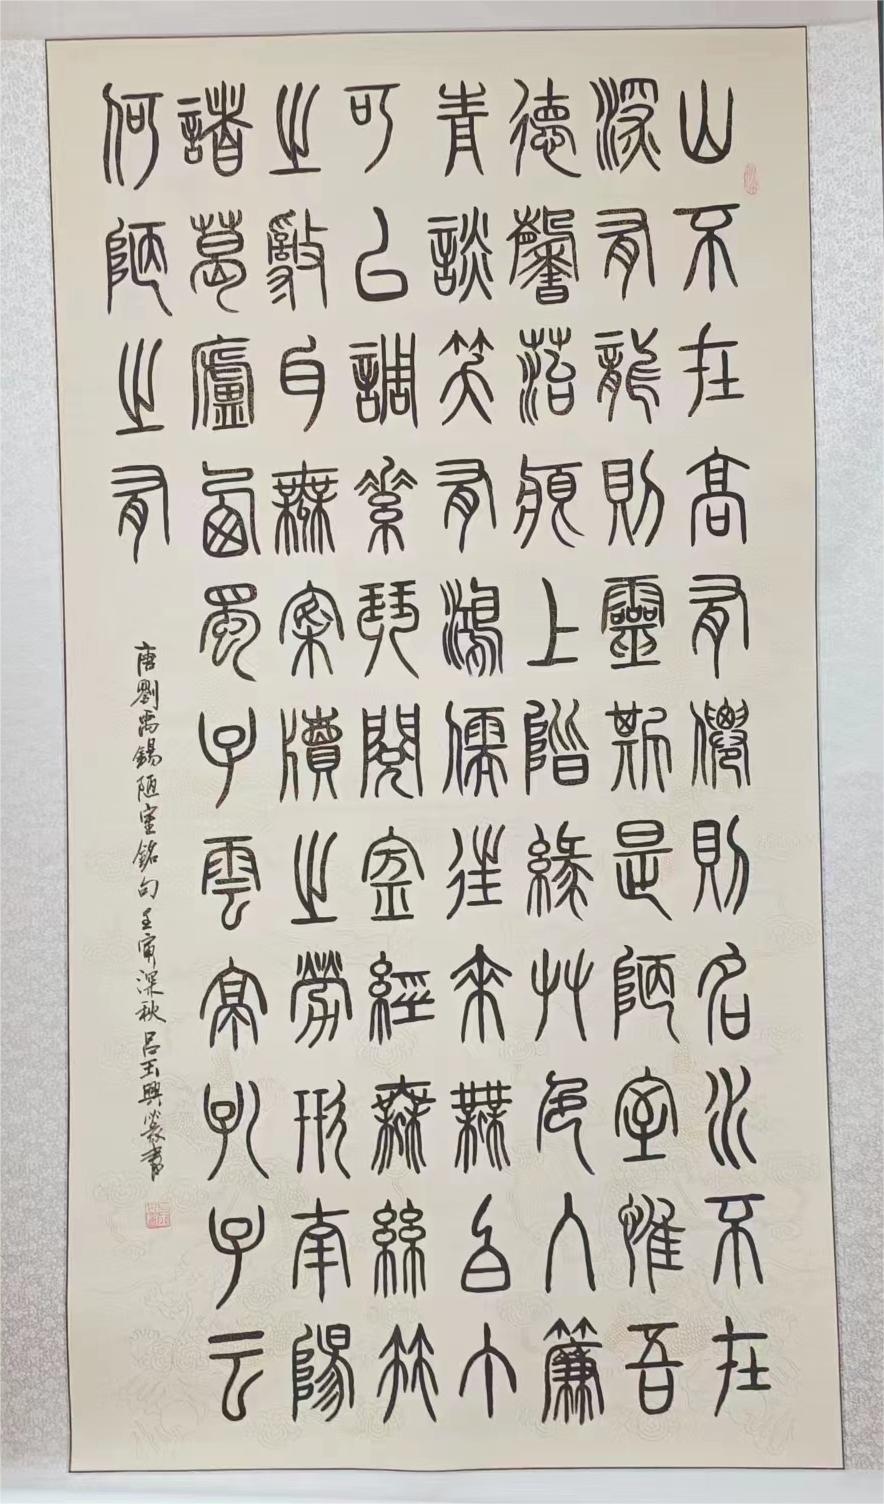 山不在高有僊則名水不在
深有龍則靈斯是陋室惟吾
德馨菭痕上階綠艸色入簾
青談笑有鴻儒往來無白丁
可以調素琴閱金經無絲竹
之亂耳無案牘之勞形南陽
諸葛廬西蜀子雲亭孔子云
何陋之有
唐劉禹錫陋室銘句壬寅深秋呂玉興篆書